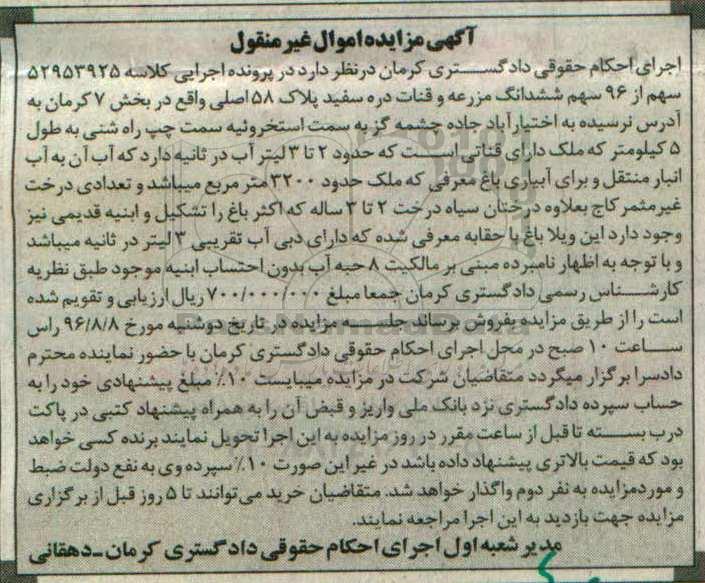 آگهی مزایده اموال غیر منقول
اجرای احکام حقوقی دادگستری کرمان در نظر دارد در پرونده اجرایی کلاسه ۵۲۹۵۳۹۲۵
سهم از ۹۶ سهم ششدانگ مزرعه و قنات دره سفید پلاک ۵۸ اصلی واقع در بخش ۷ کرمان به
آدرس نرسیده به اختیارآباد جاده چشمه گز به سمت استخروئیه سمت چپ راه شنی به طول
۵ کیلومتر که ملک دارای قناتی است که حدود ۲ تا ۳ لیتر آب در ثانیه دارد که آب آن به آب
انبار منتقل و برای آبیاری باغ معرفی که ملک حدود ۳۲۰۰ متر مربع میباشد و تعدادی درخت
غیرمثمر کاج بعلاوه درختان سیاه درخت ۲ تا ۳ ساله که اکثر باغ را تشکیل و ابنیه قدیمی نیز
وجود دارد این ویلا باغ با حقابه معرفی شده که دارای دبی آب تقریبی ۳ لیتر در ثانیه میباشد
و با توجه به اظهار نامبرده مبنی بر مالکیت ۸ حبه آب بدون احتساب ابنیه موجود طبق نظریه
کارشناس رسمی دادگستری کرمان جمعا مبلغ ۷۰۰/۰۰۰/۰۰۰ ریال ارزیابی و تقویم شده
است را از طریق مزایده بفروش برساند جلسه مزایده در تاریخ دوشنبه مورخ ۹۶/۸/۸ راس
ساعت ۱۰ صبح در محل اجرای احکام حقوقی دادگستری کرمان با حضور نماینده محترم
دادسرا برگزار میگردد متقاضیان شرکت در مزایده میبایست ۱۰٪ مبلغ پیشنهادی خود را به
حساب سپرده دادگستری نزد بانک ملی واریز و قبض آن را به همراه پیشنهاد کتبی در پاکت
درب بسته تا قبل از ساعت مقرر در روز مزایده به این اجرا تحویل نمایند برنده کسی خواهد
بود که قیمت بالاتری پیشنهاد داده باشد در غیر این صورت ۱۰٪ سپرده وی به نفع دولت ضبط
و مورد مزایده به نفر دوم واگذار خواهد شد. متقاضیان خرید می‌توانند تا ۵ روز قبل از برگزاری
مزایده جهت بازدید به این اجرا مراجعه نمایند.
مدیر شعبه اول اجرای احکام حقوقی دادگستری کرمان-دهقانی